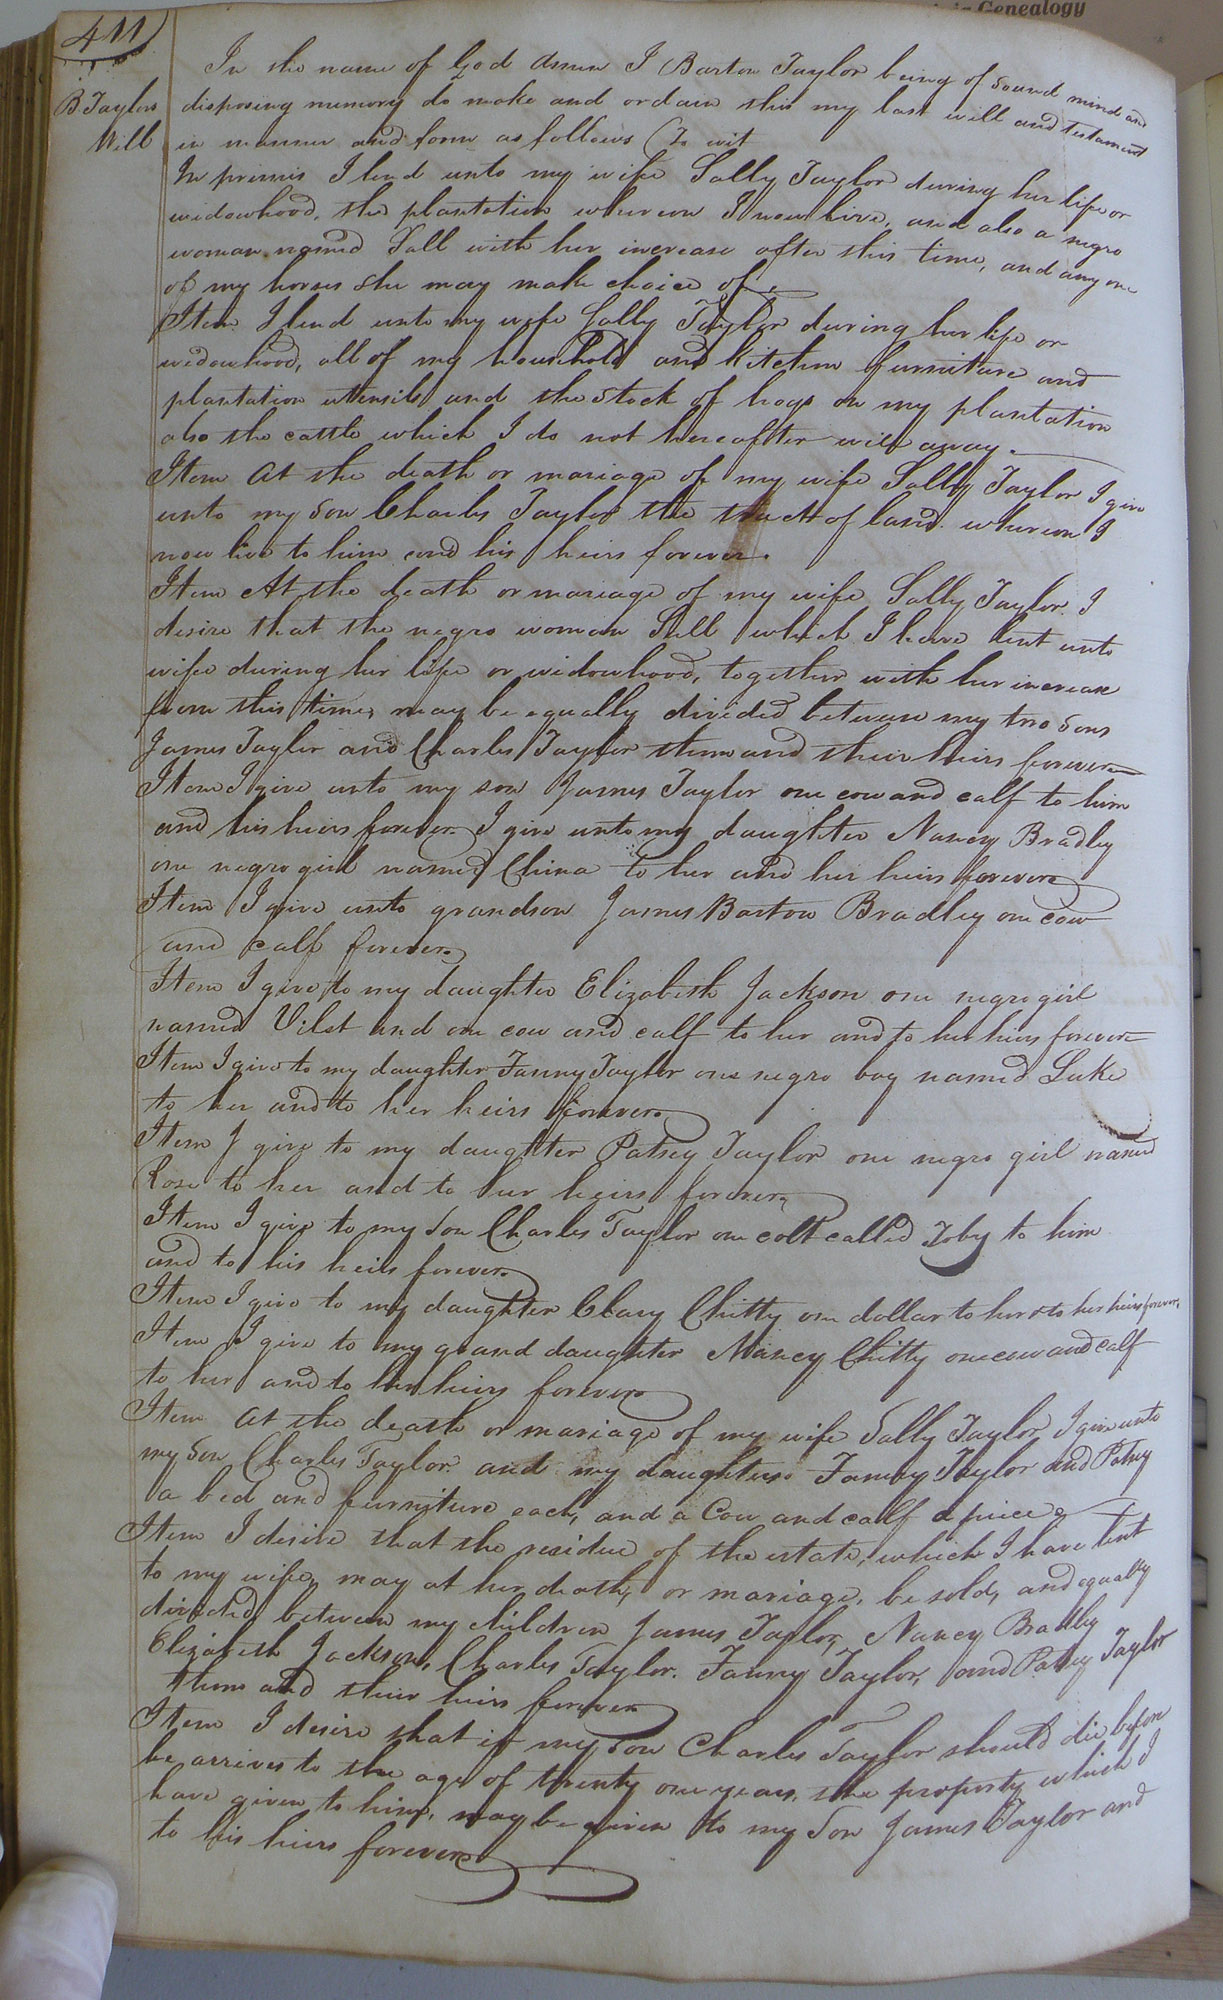 Genealogy
411
B Taylors
Will
In the name of God Amen I Barton Taylor being of sound mind and
disposing memory do make and ordain this my last will and testament
in manner and form as follows (To wit
In primis I lend unto my wife Sally Taylor during her life or
widowhood, the plantation whereon I now live, and also a negro
woman named Sall with her increase after this time, and any one
of my horses she may make choice of.
Item I lend unto my wife Sally Taylor during her life or
widowhood, all of my household and kitchen furniture and
plantation utensils and the stock of hogs on my plantation
also the cattle which I do not hereafter will away.
Item At the death or mariage of my wife Sally Taylor I give
unto my son Charles Taylor the tract of land whereon I
now live to him and his heirs forever.
Item At the death or mariage of my wife Sally Taylor I
desire that the negro woman Sall which I have lent unto
wife during her life or widowhood, together with her increase
from this time, may be equally divided between my two sons
James Taylor and Charles Taylor them and their heirs forever
Item I give unto my son James Taylor one cow and calf to him
and his heirs forever I give unto my daughter Nancy Bradley
one negro girl named China to her and her heirs forever
Item I give unto grandson James Barton Bradley one cow
and calf forever
Item I give to my daughter Elizabeth Jackson one negro girl
named Vilet and one cow and calf to her and to her heirs forever
Item I give to my daughter Fanny Taylor one negro boy named Luke
to her and to her heirs forever
Item I give to my daughter Patsey Taylor one negro girl named
Rose to her and to her heirs forever
Item I give to my son Charles Taylor one colt called Toby to him
and to his heirs forever
Item I give to my daughter Clary Chitty one dollar to her & to her heirs forever,
Item I give to my grand daughter Nancy Chitty one cow and calf
to her and to her heirs forever
Item At the death or mariage of my wife Sally Taylor I give unto
my son Charles Taylor and my daughters Fanny Taylor and Patsey
a bed and furniture each, and a Cow and calf a piece
Item I desire that the residue of the estate, which I have lent
to my wife, may at her death, or mariage, be sold, and equally
divided, between my children James Taylor, Nancy Bradley
Elizabeth Jackson, Charles Taylor. Fanny Taylor, and Patsey Taylor
them and their heirs forever
Item I desire that if my son Charles Taylor should die before
he arrives to the age of twenty one years, the property which I
have given to him, may be given to my son James Taylor and
to his heirs forever